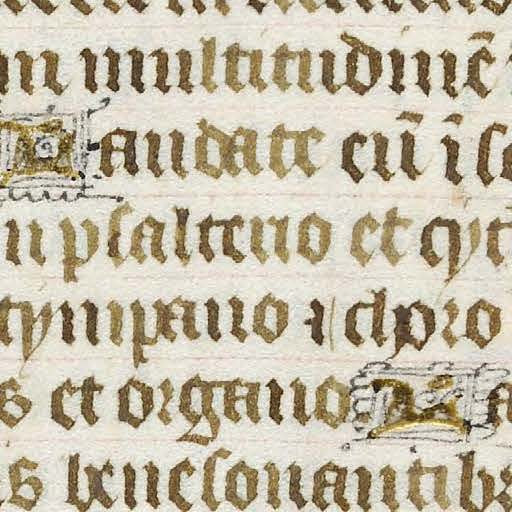 m multitudinē
audate eū ī so
n psalterio et cyt
tympano ⁊ choro
s et organo
s benesonantibꝰ